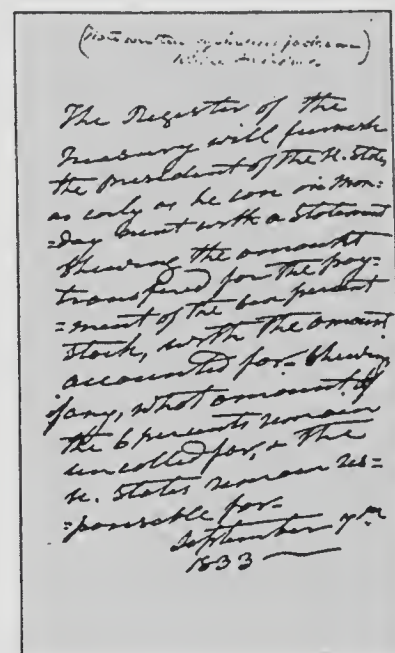 (Note written by Andrew Jackson)
The Register of the
Treasury will furnish
the President of the U. States
as early as he can on Mon=
=day next with a Statement
Shewing the amount
transfered for the pay=
=ment of the six percent
Stock, with the amount
accounted for - Shewing
if any, what amount of
the 6 percents remain
uncalled for, & the
U. States remain res=
=ponsible for -
September 7th
1833